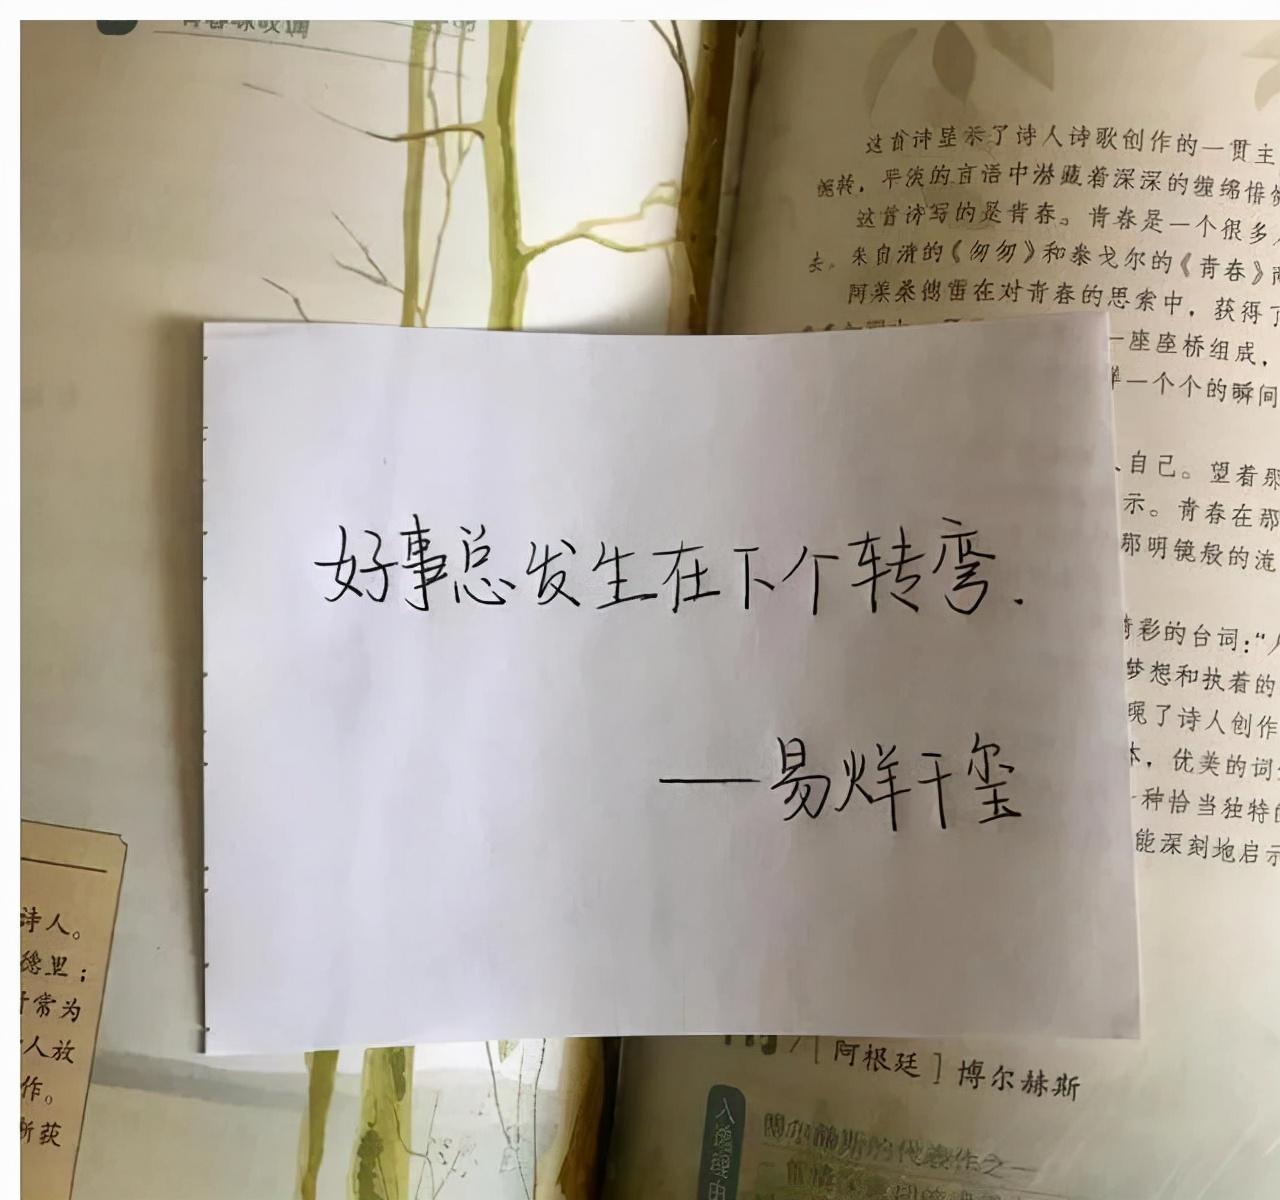 这首诗显示了诗人诗歌创作的一贯主
婉转，平淡的言语中潜藏着深深的缠绵悱
这首诗写的是青春。青春是一个很多
去。朱自清的《匆匆》和泰戈尔的《青春》
阿莱桑德雷在对青春的思索中，获得了
一座座桥组成，
一个个的瞬间
自己。望着那
示。青春在那
那明镜般的流
好事总发生在下个转弯.
彩的台词：“人
梦想和执着的
现了诗人创作
——易烊千玺
，优美的词
种恰当独特的
能深刻地启示
诗人。
里；
常为
人放
作。
获
［阿根廷］博尔赫斯
入选理由
博尔赫斯的代表作之一